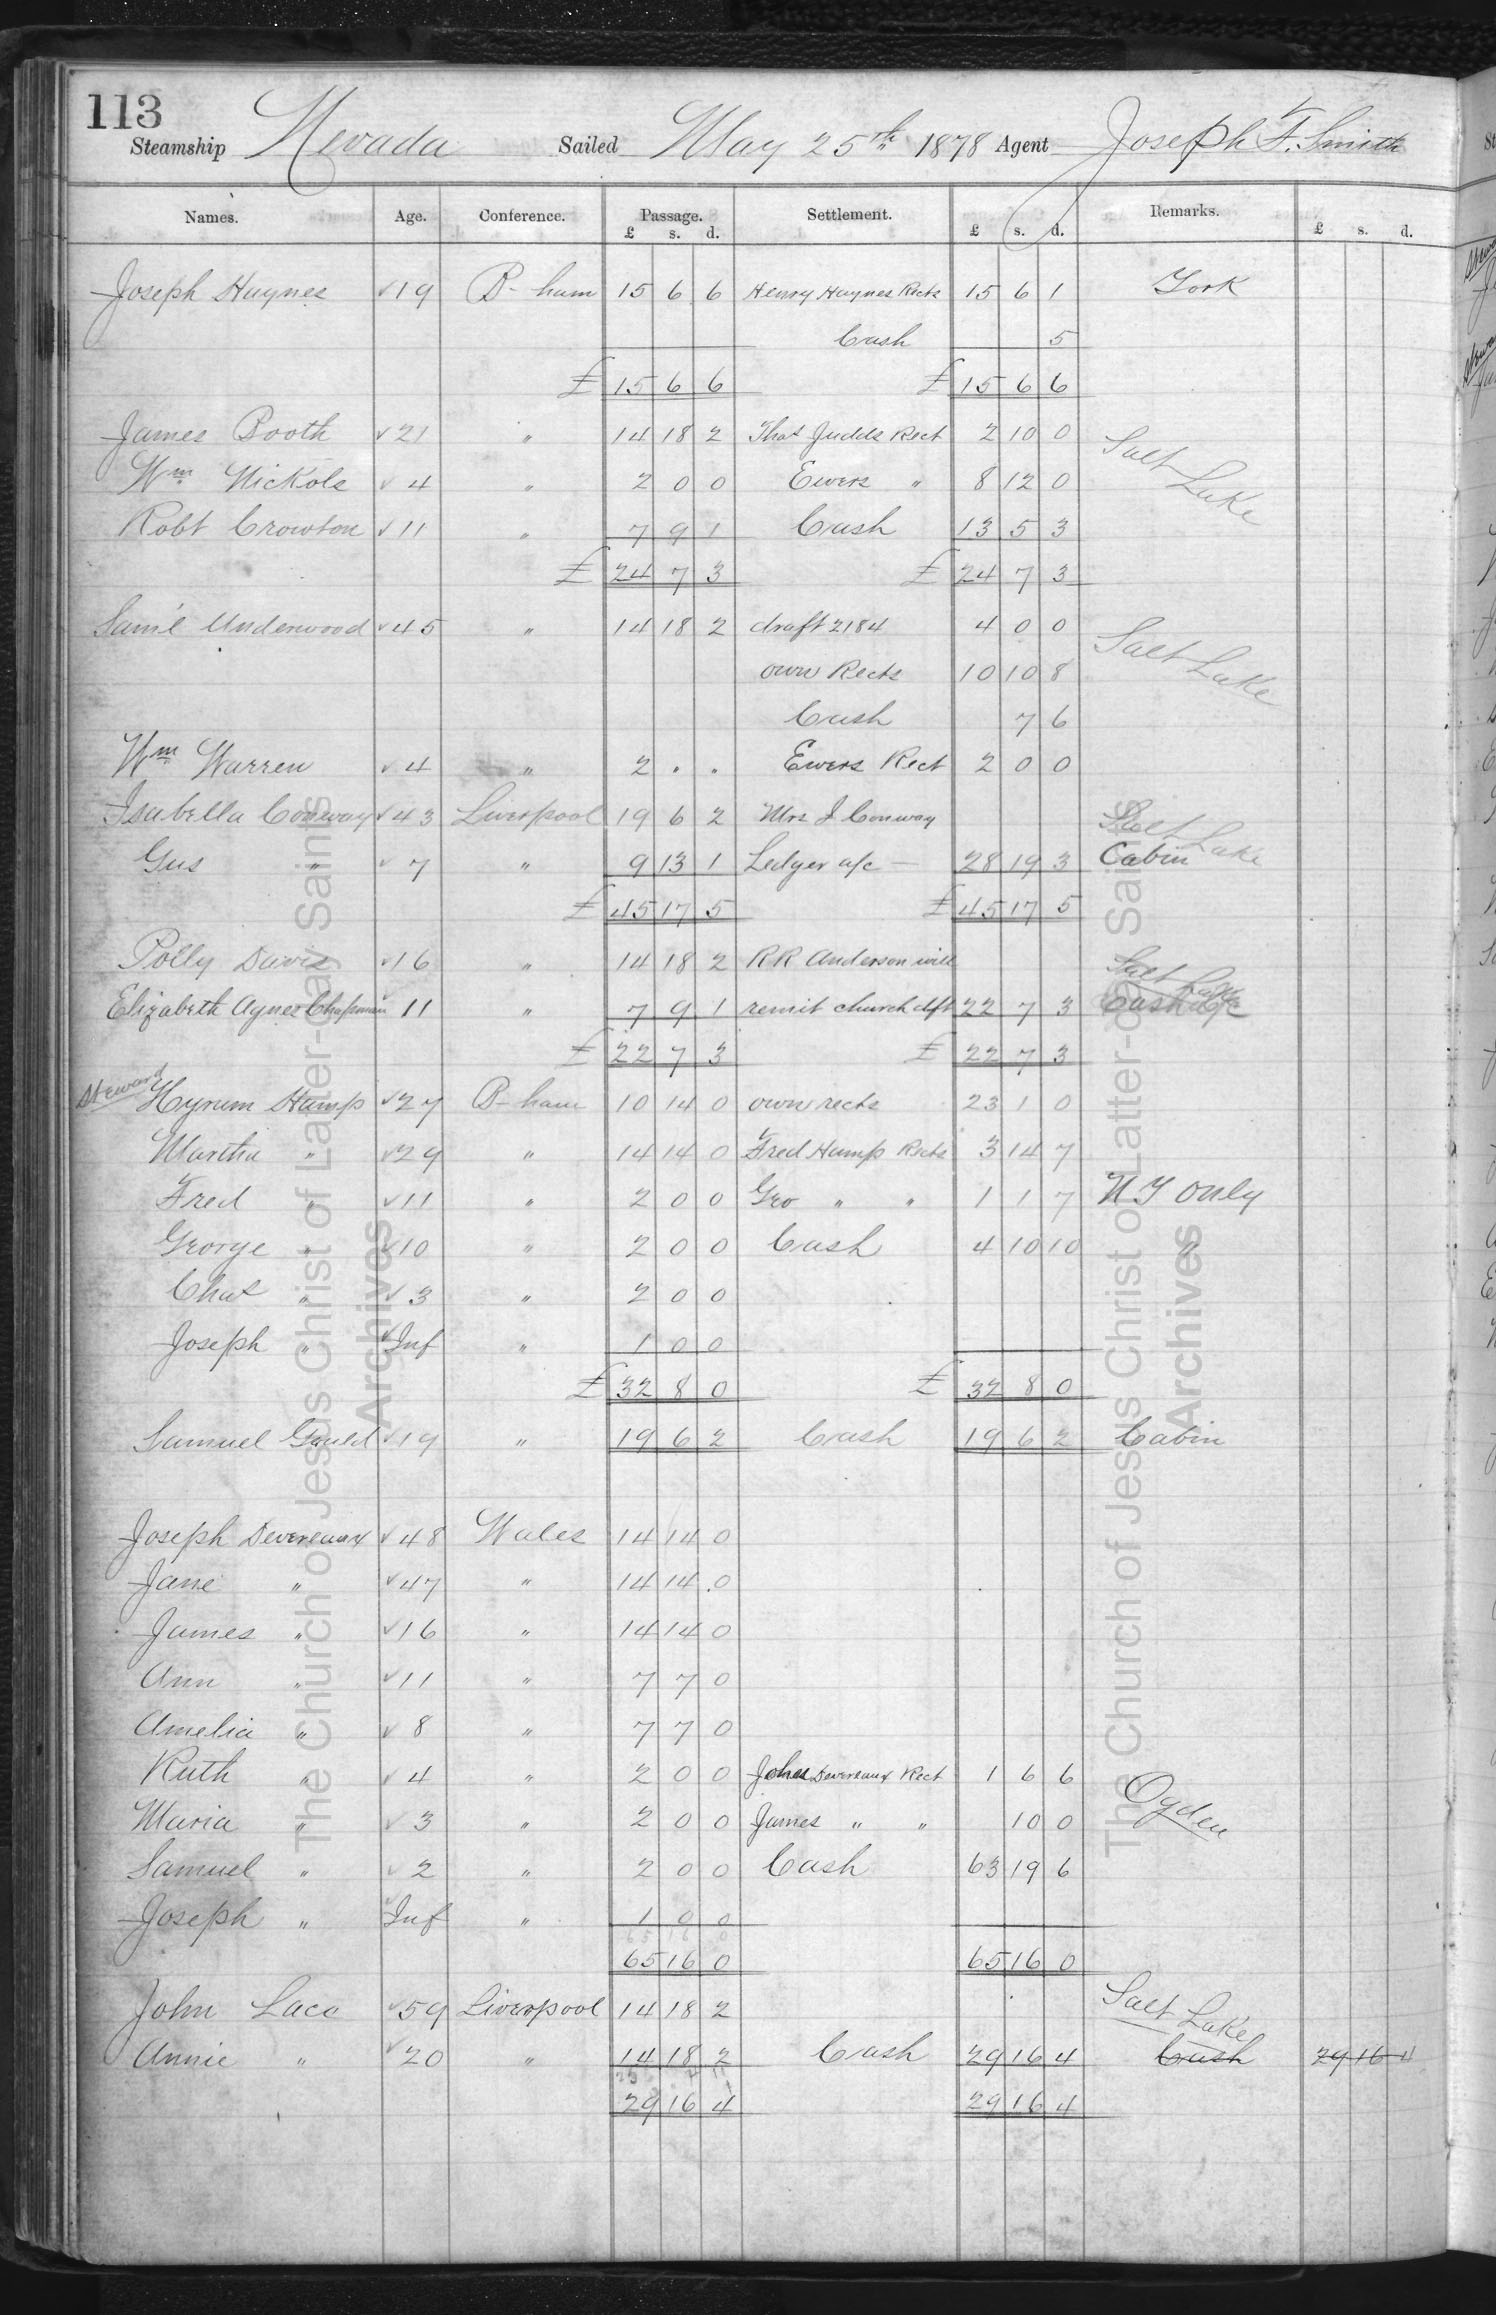 113
Steamship Nevada Sailed May 25th 1878 Agent Joseph F. Smith
Names. Age. Conference. Passage. Settlement. Remarks.
£ s. d. £ s. d. £ s. d.
Joseph Haynes 19 B-ham 15 6 6 Henry Haynes Rects 15 6 1 York
Cash 5
£ 15 6 6 £ 15 6 6
James Booth 21 " 14 18 2 Thos Judds Rect 2 10 0 Salt Lake
Wm Nickols 4 " 2 0 0 Ewers " 8 12 0
Robt Crowton 11 " 7 9 1 Cash 13 5 3
£ 24 7 3 £ 24 7 3
Saml Underwood 45 " 14 18 2 draft 2184 4 0 0 Salt Lake
own Rects 10 10 8
Cash 7 6
Wm Warren 4 " 2 " " Ewers Rect 2 0 0
Isabella Conway 43 Liverpool 19 6 2 Mrs I Conway Salt Lake
Gus " 7 " 9 13 1 Ledger a/c — 28 19 3 Cabin
£ 45 17 5 £ 45 17 5
Polly Davis 16 " 14 18 2 RR Anderson will Salt Lake
Elizabeth Agnes Chapman 11 " 7 9 1 remit church dft 22 7 3
£ 22 7 3 £ 22 7 3
Steward Hyrum Hamp 27 B-ham 10 14 0 own rects 23 1 0
Martha " 29 " 14 14 0 Fred Hamp Rects 3 14 7
Fred " 11 " 2 0 0 Geo " " 1 1 7 N Y only
George " 10 " 2 0 0 Cash 4 10 10 "
Chas " 3 " 2 0 0
Joseph " Inf " 1 0 0
£ 32 8 0 £ 32 8 0
Samuel Gould 19 " 19 6 2 Cash 19 6 2 Cabin
Joseph Devereaux 48 Wales 14 14 0
Jane " 47 " 14 14 0
James " 16 " 14 14 0
Ann " 11 " 7 7 0
Amelia " 8 " 7 7 0
Ruth " 4 " 2 0 0 Devereaux Rect 1 6 6 Ogden
Maria " 3 " 2 0 0 James " " 10 0
Samuel " 2 " 2 0 0 Cash 63 19 6
Joseph " Inf " 1 0 0
65 16 0 65 16 0
John Lace 59 Liverpool 14 18 2 Salt Lake
Annie " 20 " 14 18 2 Cash 29 16 4 Cash 29 16 4
29 16 4 29 16 4
The Church of Jesus Christ of Latter-day Saints
Archives
The Church of Jesus Christ of Latter-day Saints
Archives